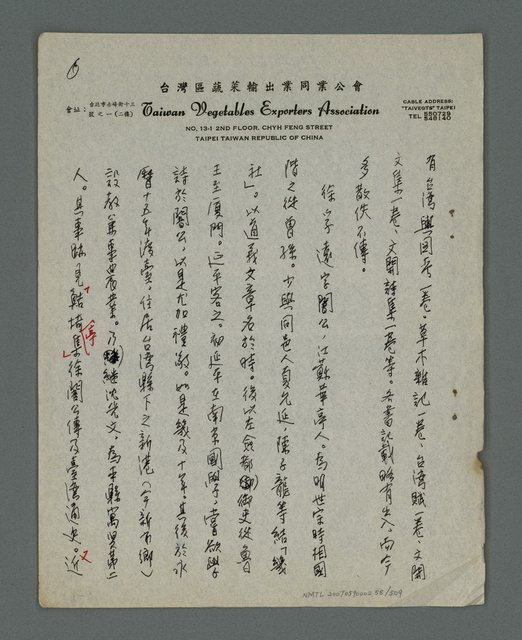 6
台灣區蔬菜輸出業同業公會
會址:台北市赤峰街十三號之一(二樓)
Taiwan Vegetables Exporters Association
CABLE ADDRESS:
"TAIVEGTS" TAIPEI
TEL 550729
548140
NO, 13-1 2ND FLOOR, CHYH FENG STREET
TAIPEI TAIWAN REPUBLIC OF CHINA
有台灣輿圖考一卷。草木雜記一卷、台灣賦一卷、文開
文集一卷、文開詩集一卷等。各書記載略有出入、而今
多散佚不傳。
徐孚遠字闇公,江蘇華亭人。為明世宗時相國
階之從曾孫。少與同邑人夏允彝、陳子龍等結「幾
社」。以道義文章名於時。後以左僉都御史從魯
王至厦門。延平客之。初延平在南京國學,嘗欲學
詩於闇公,以是尤加禮敬。如是幾及十年。其後於永
曆十五年渡臺,住居台灣縣下之新港(今新市鄉)
設教並事農業。乃繼沈光文,為本縣寓賢第二
人。其事跡見「鮚埼亭集」徐闇公傳及臺灣通史。又近
NMTL 20070590002 58/309